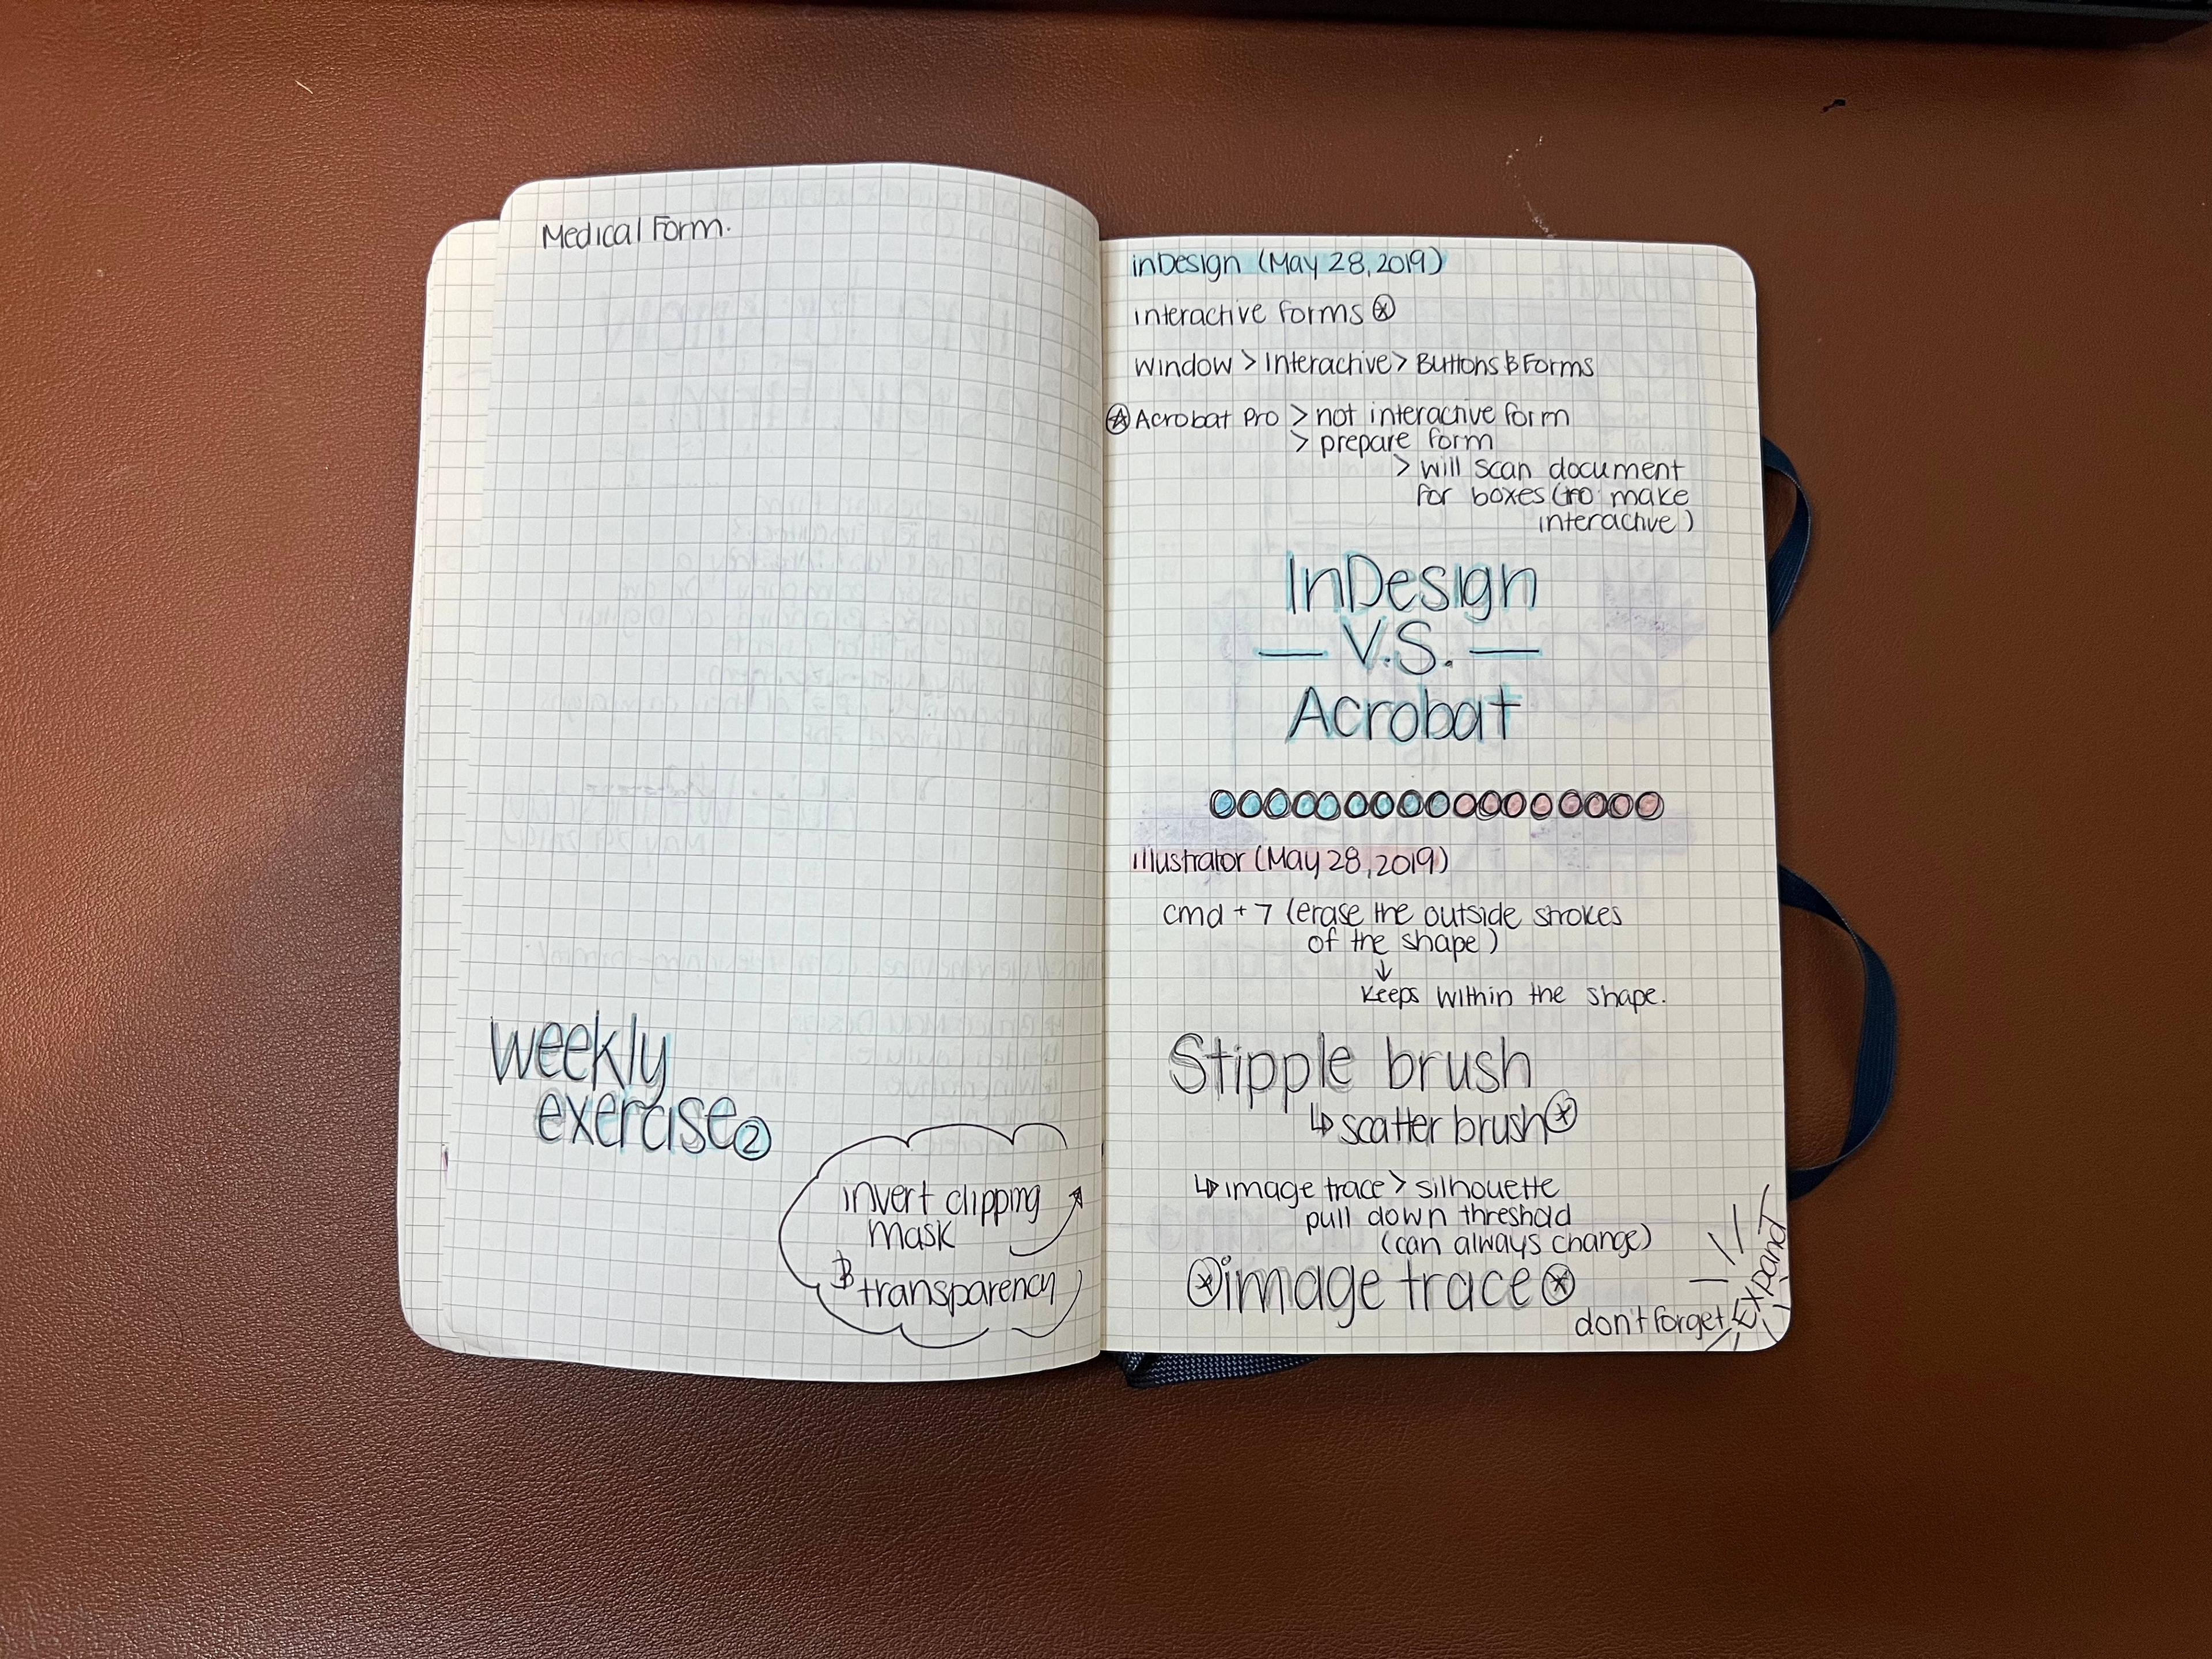 Medical Form.
weekly
exercise ②
invert clipping
mask
& transparency
inDesign (May 28, 2019)
interactive forms
window > Interactive > Buttons & Forms
Acrobat Pro > not interactive form
> prepare form
> will scan document
for boxes (to make
interactive)
InDesign
— V.S. —
Acrobat
illustrator (May 28, 2019)
cmd + 7 (erase the outside strokes
of the shape)
↓
keeps within the shape.
Stipple brush
↳ scatter brush
↳ image trace > silhouette
pull down threshold
(can always change)
image trace
don't forget
Expand